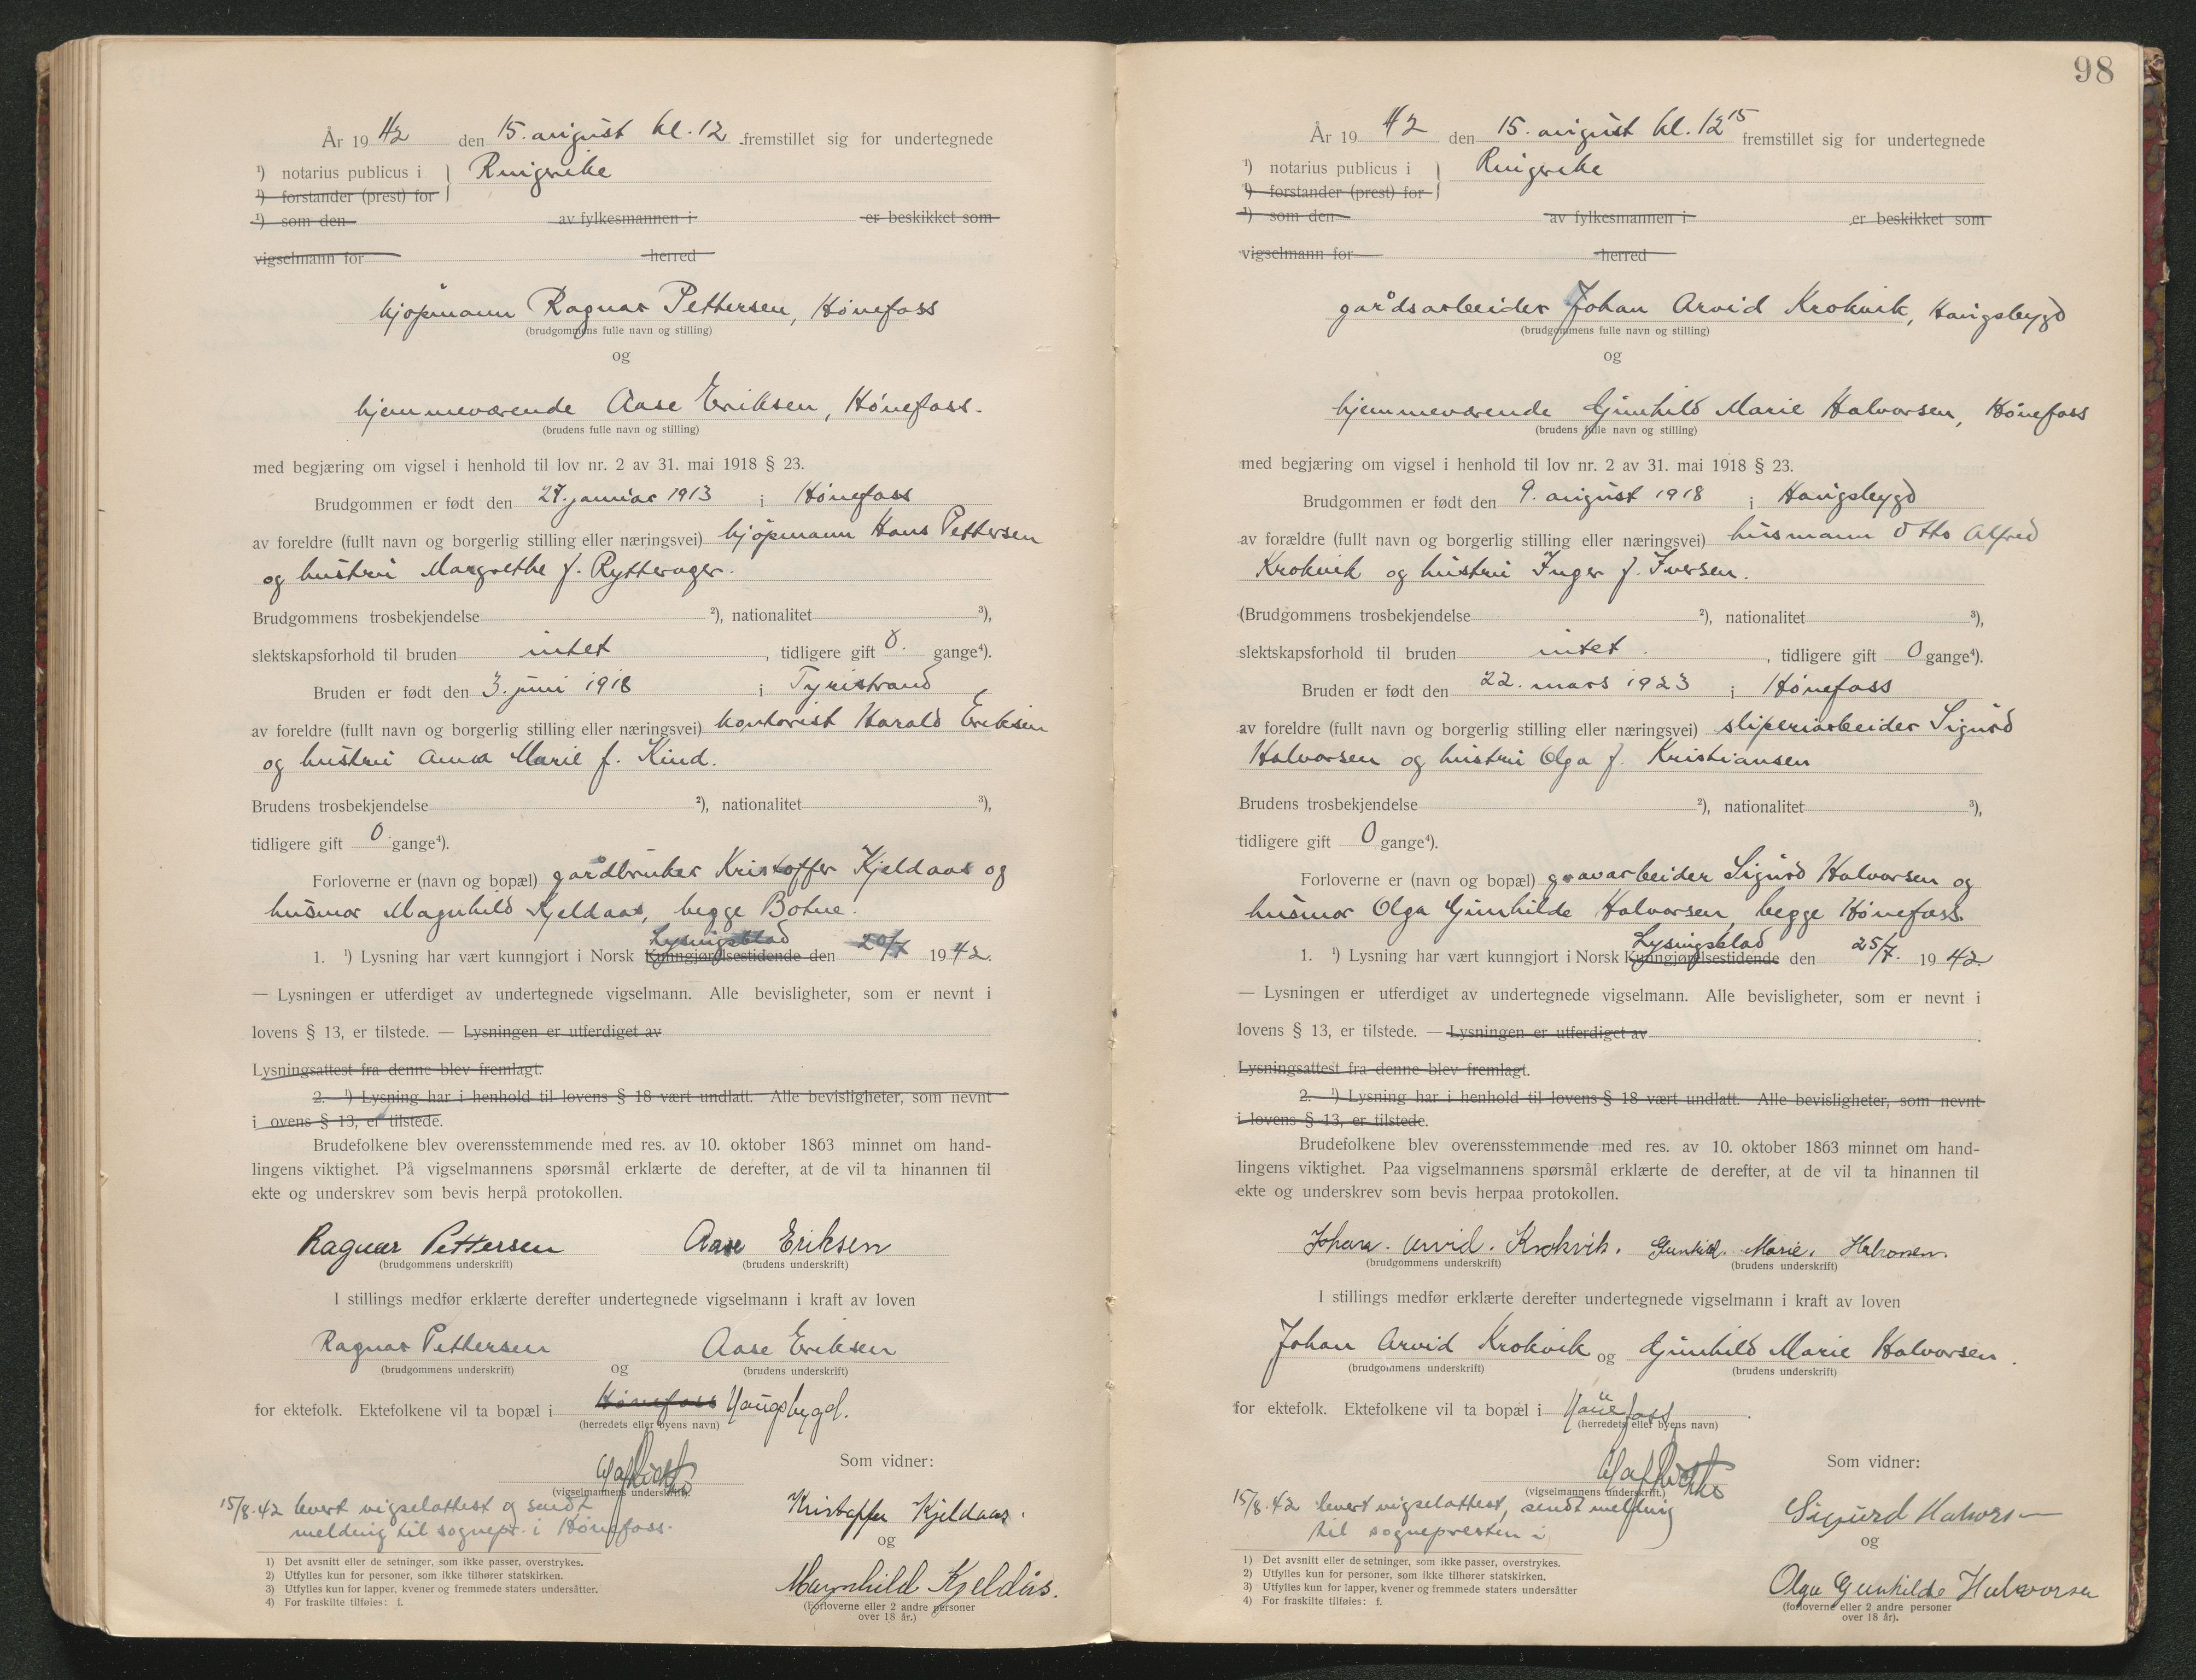 År 1942 den 15. august kl. 12 fremstillet sig for undertegnede
¹) notarius publicus i } Ringerike
¹) forstander (prest) for
¹) som den av fylkesmannen i er beskikket som
vigselmann for herred
kjøpmann Ragnar Pettersen, Hønefoss
(brudgommens fulle navn og stilling)
og
hjemmeværende Aase Eriksen, Hønefoss.
(brudens fulle navn og stilling)
med begjæring om vigsel i henhold til lov nr. 2 av 31. mai 1918 § 23.
Brudgommen er født den 27. januar 1913 i Hønefoss
av foreldre (fullt navn og borgerlig stilling eller næringsvei) kjøpmann Hans Pettersen
og hustru Margrethe f. Rytterager.
Brudgommens trosbekjendelse ²), nationalitet ³),
slektskapsforhold til bruden intet, tidligere gift 0. gange⁴).
Bruden er født den 3. juni 1918 i Tyristrand
av foreldre (fullt navn og borgerlig stilling eller næringsvei) kontorist Harald Eriksen
og hustru Anna Marie f. Kind.
Brudens trosbekjendelse ²), nationalitet ³),
tidligere gift 0 gange⁴).
Forloverne er (navn og bopæl) gårdbruker Kristoffer Kjeldaas og
husmor Magnhild Kjeldaas, begge Botne.
Lysningsblad
1. ¹) Lysning har vært kunngjort i Norsk Kunngjørelsestidende den 20/7 1942.
— Lysningen er utferdiget av undertegnede vigselmann. Alle bevisligheter, som er nevnt i
lovens § 13, er tilstede. — Lysningen er utferdiget av
Lysningsattest fra denne blev fremlagt.
2. ¹) Lysning har i henhold til lovens § 18 vært undlatt. Alle bevisligheter, som nevnt
i ovens § 13, er tilstede.
Brudefolkene blev overensstemmende med res. av 10. oktober 1863 minnet om hand-
lingens viktighet. På vigselmannens spørsmål erklærte de derefter, at de vil ta hinannen til
ekte og underskrev som bevis herpå protokollen.
Ragnar Pettersen Aase Eriksen
(brudgommens underskrift) (brudens underskrift)
I stillings medfør erklærte derefter undertegnede vigselmann i kraft av loven
Ragnar Pettersen og Aase Eriksen
(brudgommens underskrift) (brudens underskrift)
for ektefolk. Ektefolkene vil ta bopæl i Hønefoss Haugsbygd.
(herredets eller byens navn)
Som vidner:
(vigselmannens underskrift).
15/8.42 levert vigselattest og sendt
meldnig til sognepr. i Hønefoss.
Kristoffer Kjeldaas.
og
Magnhild Kjeldås.
(Forloverne eller 2 andre personer
over 18 år.)
1) Det avsnitt eller de setninger, som ikke passer, overstrykes.
2) Utfylles kun for personer, som ikke tilhører statskirken.
3) Utfylles kun for lapper, kvener og fremmede staters undersåtter.
4) For fraskilte tilføies: f.
98
År 1942 den 15. august kl. 12¹⁵ fremstillet sig for undertegnede
¹) notarius publicus i } Ringerike
¹) forstander (prest) for
¹) som den av fylkesmannen i er beskikket som
vigselmann for herred
gårdsarbeider Johan Arvid Krokvik, Haugsbygd
(brudgommens fulle navn og stilling)
og
hjemmeværende Gunhild Marie Halvorsen, Hønefoss
(brudens fulle navn og stilling)
med begjæring om vigsel i henhold til lov nr. 2 av 31. mai 1918 § 23.
Brudgommen er født den 9. august 1918 i Haugsbygd
av forældre (fullt navn og borgerlig stilling eller næringsvei) husmann Otto Alfred
Krokvik og hustru Inger f. Iversen.
(Brudgommens trosbekjendelse ²), nationalitet ³),
slektskapsforhold til bruden intet., tidligere gift 0 gange⁴).
Bruden er født den 22. mars 1923 i Hønefoss
av foreldre (fullt navn og borgerlig stilling eller næringsvei) sliperiarbeider Sigurd
Halvorsen og hustru Olga f. Kristiansen
Brudens trosbekjendelse ²), nationalitet ³),
tidligere gift 0 gange⁴).
Forloverne er (navn og bopæl) gravarbeider Sigurd Halvorsen og
husmor Olga Gunhilde Halvorsen, begge Hønefoss.
Lysningsblad
1. ¹) Lysning har vært kunngjort i Norsk Kunngjørelsestidende den 25/7. 1942.
— Lysningen er utferdiget av undertegnede vigselmann. Alle bevisligheter, som er nevnt i
lovens § 13, er tilstede. — Lysningen er utferdiget av
Lysningsattest fra denne blev fremlagt.
2. ¹) Lysning har i henhold til lovens § 18 vært undlatt. Alle bevisligheter, som nevnt
i lovens § 13, er tilstede.
Brudefolkene blev overensstemmende med res. av 10. oktober 1863 minnet om hand-
lingens viktighet. Paa vigselmannens spørsmål erklærte de derefter, at de vil ta hinannen til
ekte og underskrev som bevis herpaa protokollen.
Johan. Arvid. Krokvik. Gunhild. Marie. Halvorsen.
(brudgommens underskrift) (brudens underskrift)
I stillings medfør erklærte derefter undertegnede vigselmann i kraft av loven
Johan Arvid Krokvik og Gunhild Marie Halvorsen.
(brudgommens underskrift) (brudens underskrift)
for ektefolk. Ektefolkene vil ta bopæl i Hønefoss.
(herredets eller byens navn)
Som vidner:
(vigselmannens underskrift.)
15/8.42 levert vigselattest, sendt meldnig
til sognepresten i
Sigurd Halvorsen
og
Olga Gunhilde Halvorsen
(forloverne eller 2 andre personer
over 18 år).
1) Det avsnitt eller de setninger, som ikke passer, overstrykes.
2) Utfylles kun for personer, som ikke tilhører statskirken.
3) Utfylles kun for lapper, kvener og fremmede staters undersåtter
4) For fraskilte tilføies: f.